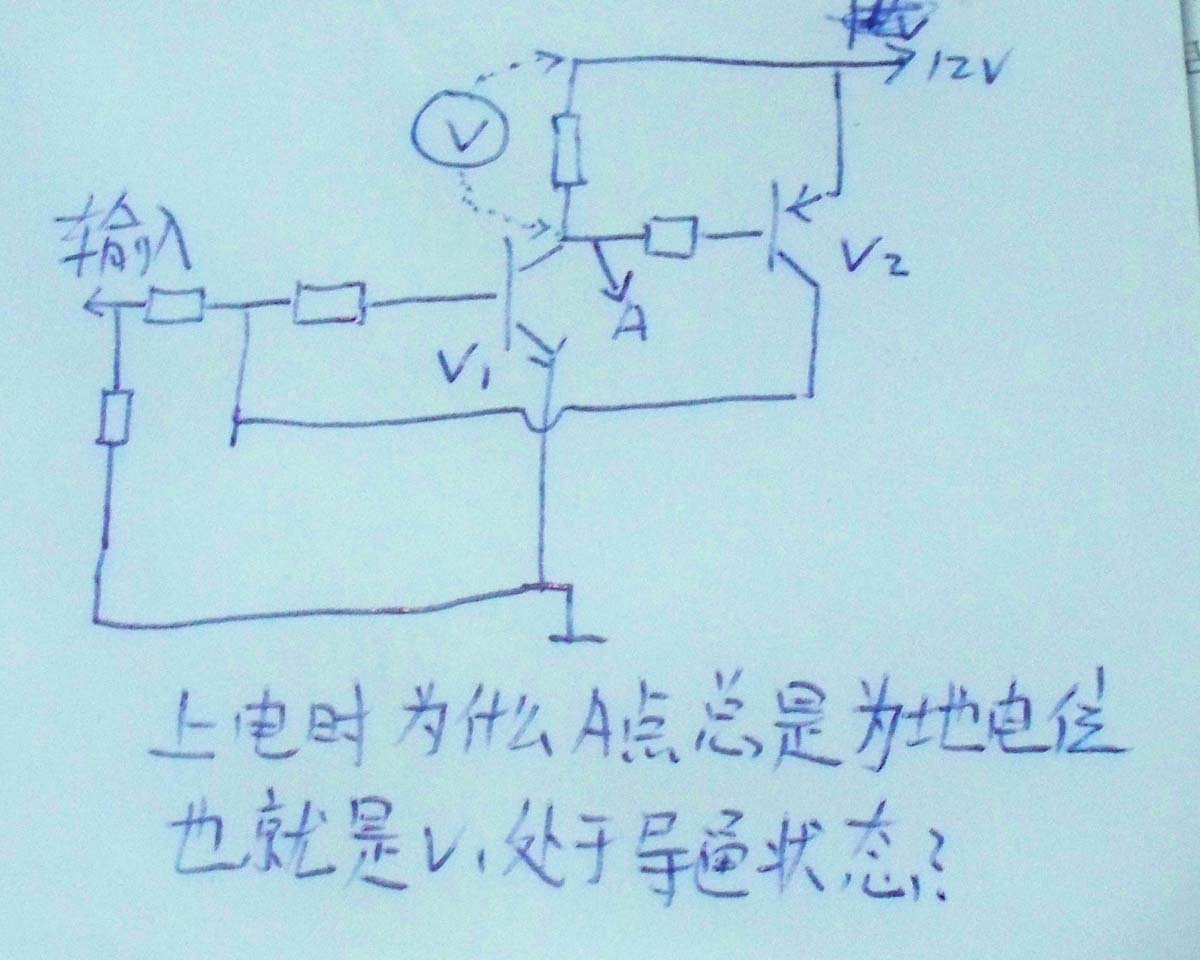 12V
V
输入
V2
A
V1
上电时为什么A点总是为地电位
也就是V1处于导通状态?